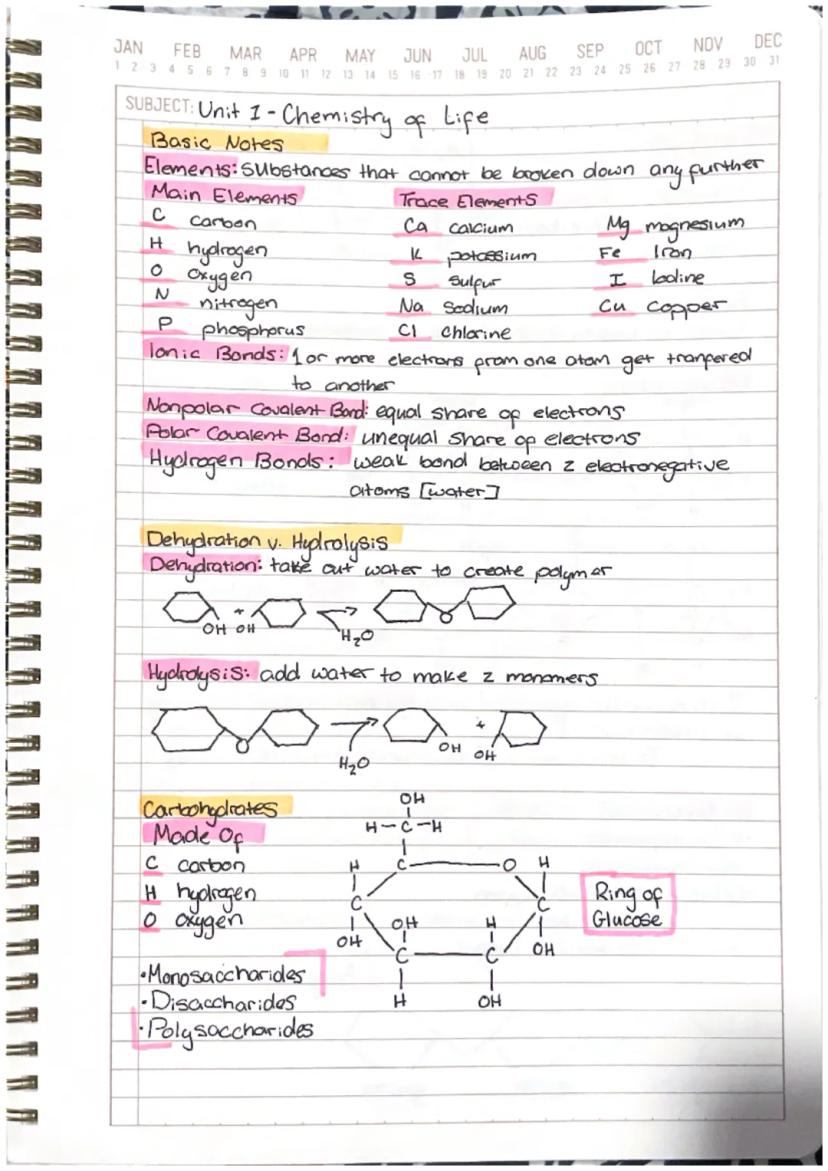 JAN FEB MAR APR MAY JUN JUL AUG SEP OCT NOV DEC
1 2 3 4 5 6 7 8 9 10 11 12 13 14 15 16 17 18 19 20 21 22 23 24 25 26 27 28 29 30 31
SUBJECT: Unit 1 - Chemistry of Life
Basic Notes
Elements: substances that cannot be broken down any further
Main Elements Trace Elements
C carbon Ca calcium Mg magnesium
H hydrogen K potassium Fe Iron
O oxygen S sulfur I Iodine
N nitrogen Na Sodium Cu Copper
P phosphorus Cl chlorine
Ionic Bonds: 1 or more electrons from one atom get tranfered
to another
Nonpolar Covalent Bond: equal share of electrons
Polar Covalent Bond: unequal share of electrons
Hydrogen Bonds: weak bond between 2 electronegative
atoms [water]
Dehydration v. Hydrolysis
Dehydration: take out water to create polymer
+
OH OH H₂O O
Hydrolysis: add water to make 2 monomers
+
O H₂O OH OH
Carbohydrates
Made Of
C carbon
H hydrogen
O oxygen
•Monosaccharides
•Disaccharides
•Polysaccharides
OH
H-C-H
H C O H
C C
OH OH H OH
C C
H OH
Ring of
Glucose